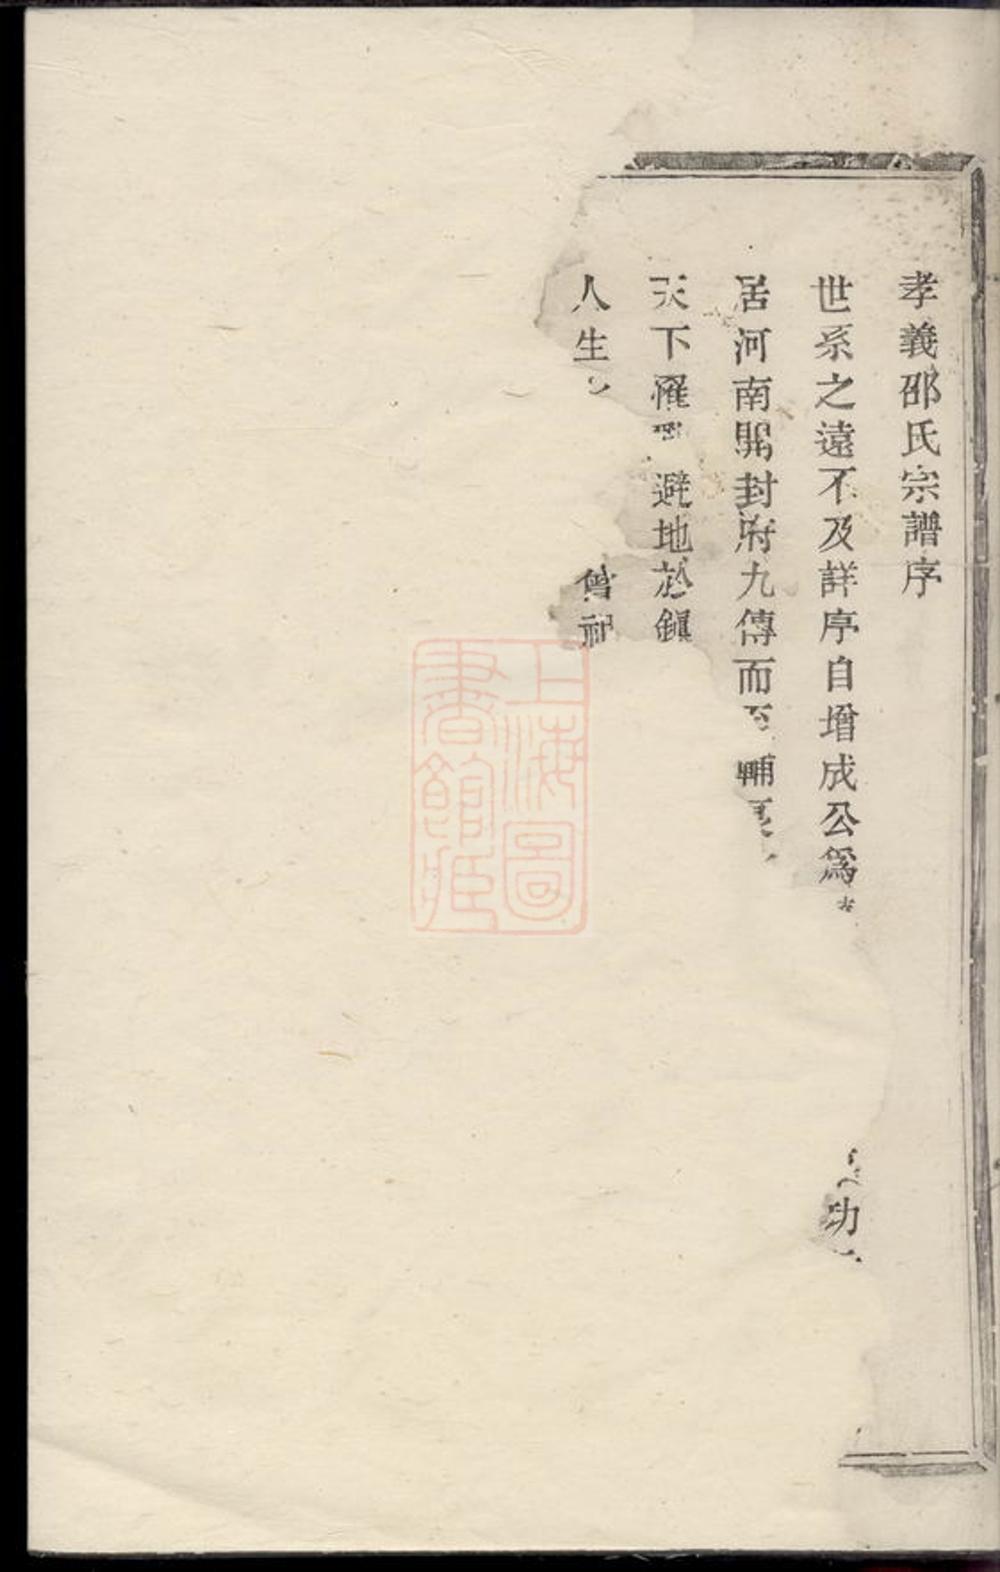 孝義邵氏宗譜序
世系之遠不及詳序自增成公爲
功
居河南開封府九傳而至輔
天下罹 避地於鎮
人生
曾祖
上海圖
書館藏